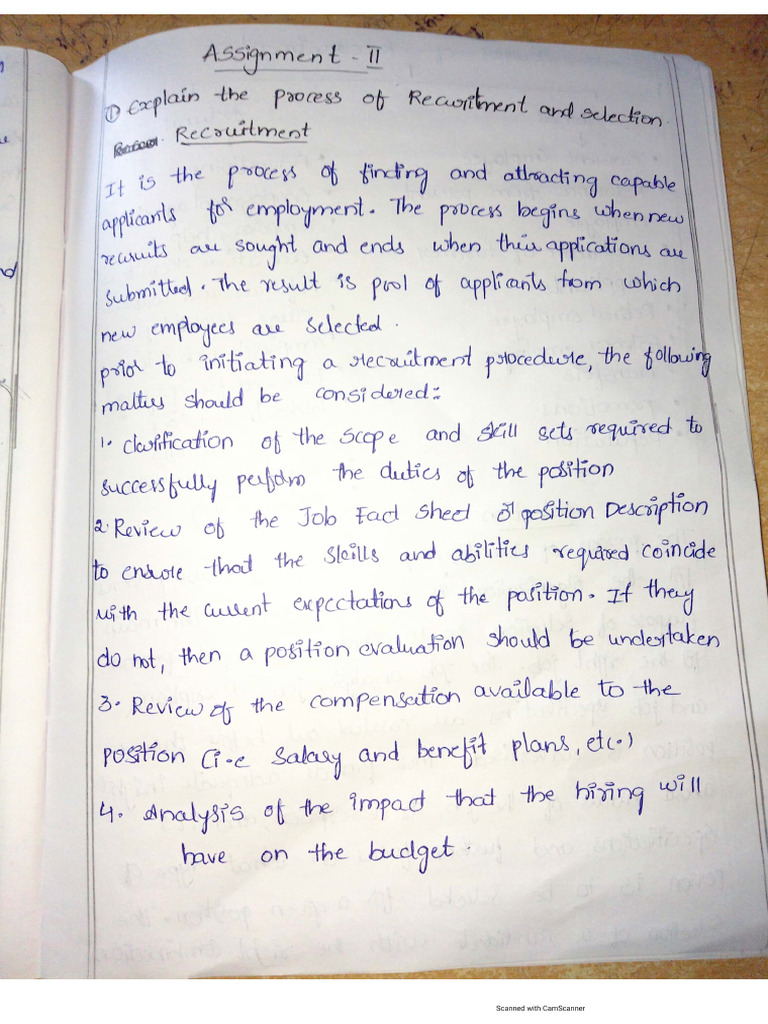 Assignment - II
① Explain the process of Recruitment and selection.
Recruitment
It is the process of finding and attracting capable
applicants for employment. The process begins when new
recruits are sought and ends when their applications are
submitted. The result is pool of applicants from which
new employees are selected.
prior to initiating a recruitment procedure, the following
matters should be considered:-
1. clarification of the scope and skill sets required to
successfully perform the duties of the position
2. Review of the Job Fact sheet or position Description
to ensure that the skills and abilities required coincide
with the current expectations of the position. If they
do not, then a position evaluation should be undertaken
3. Review of the compensation available to the
position (i.e salary and benefit plans, etc.)
4. Analysis of the impact that the hiring will
have on the budget.
Scanned with CamScanner